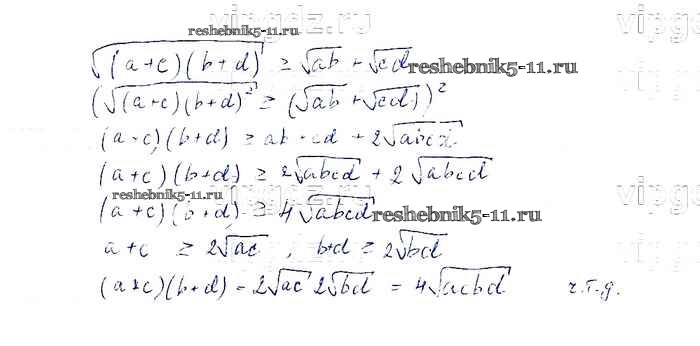 vipgdz.ru
reshebnik5-11.ru
√(a+c)(b+d) ≥ √ab + √cd reshebnik5-11.ru
(√(a+c)(b+d))² ≥ (√ab + √cd))²
(a+c)(b+d) ≥ ab + cd + 2√abcd
(a+c)(b+d) ≥ 2√abcd + 2√abcd
reshebnik5-11.ru
(a+c)(b+d) ≥ 4√abcd reshebnik5-11.ru
a+c ≥ 2√ac, b+d ≥ 2√bd
(a+c)(b+d) = 2√ac 2√bd = 4√acbd ч.т.д.